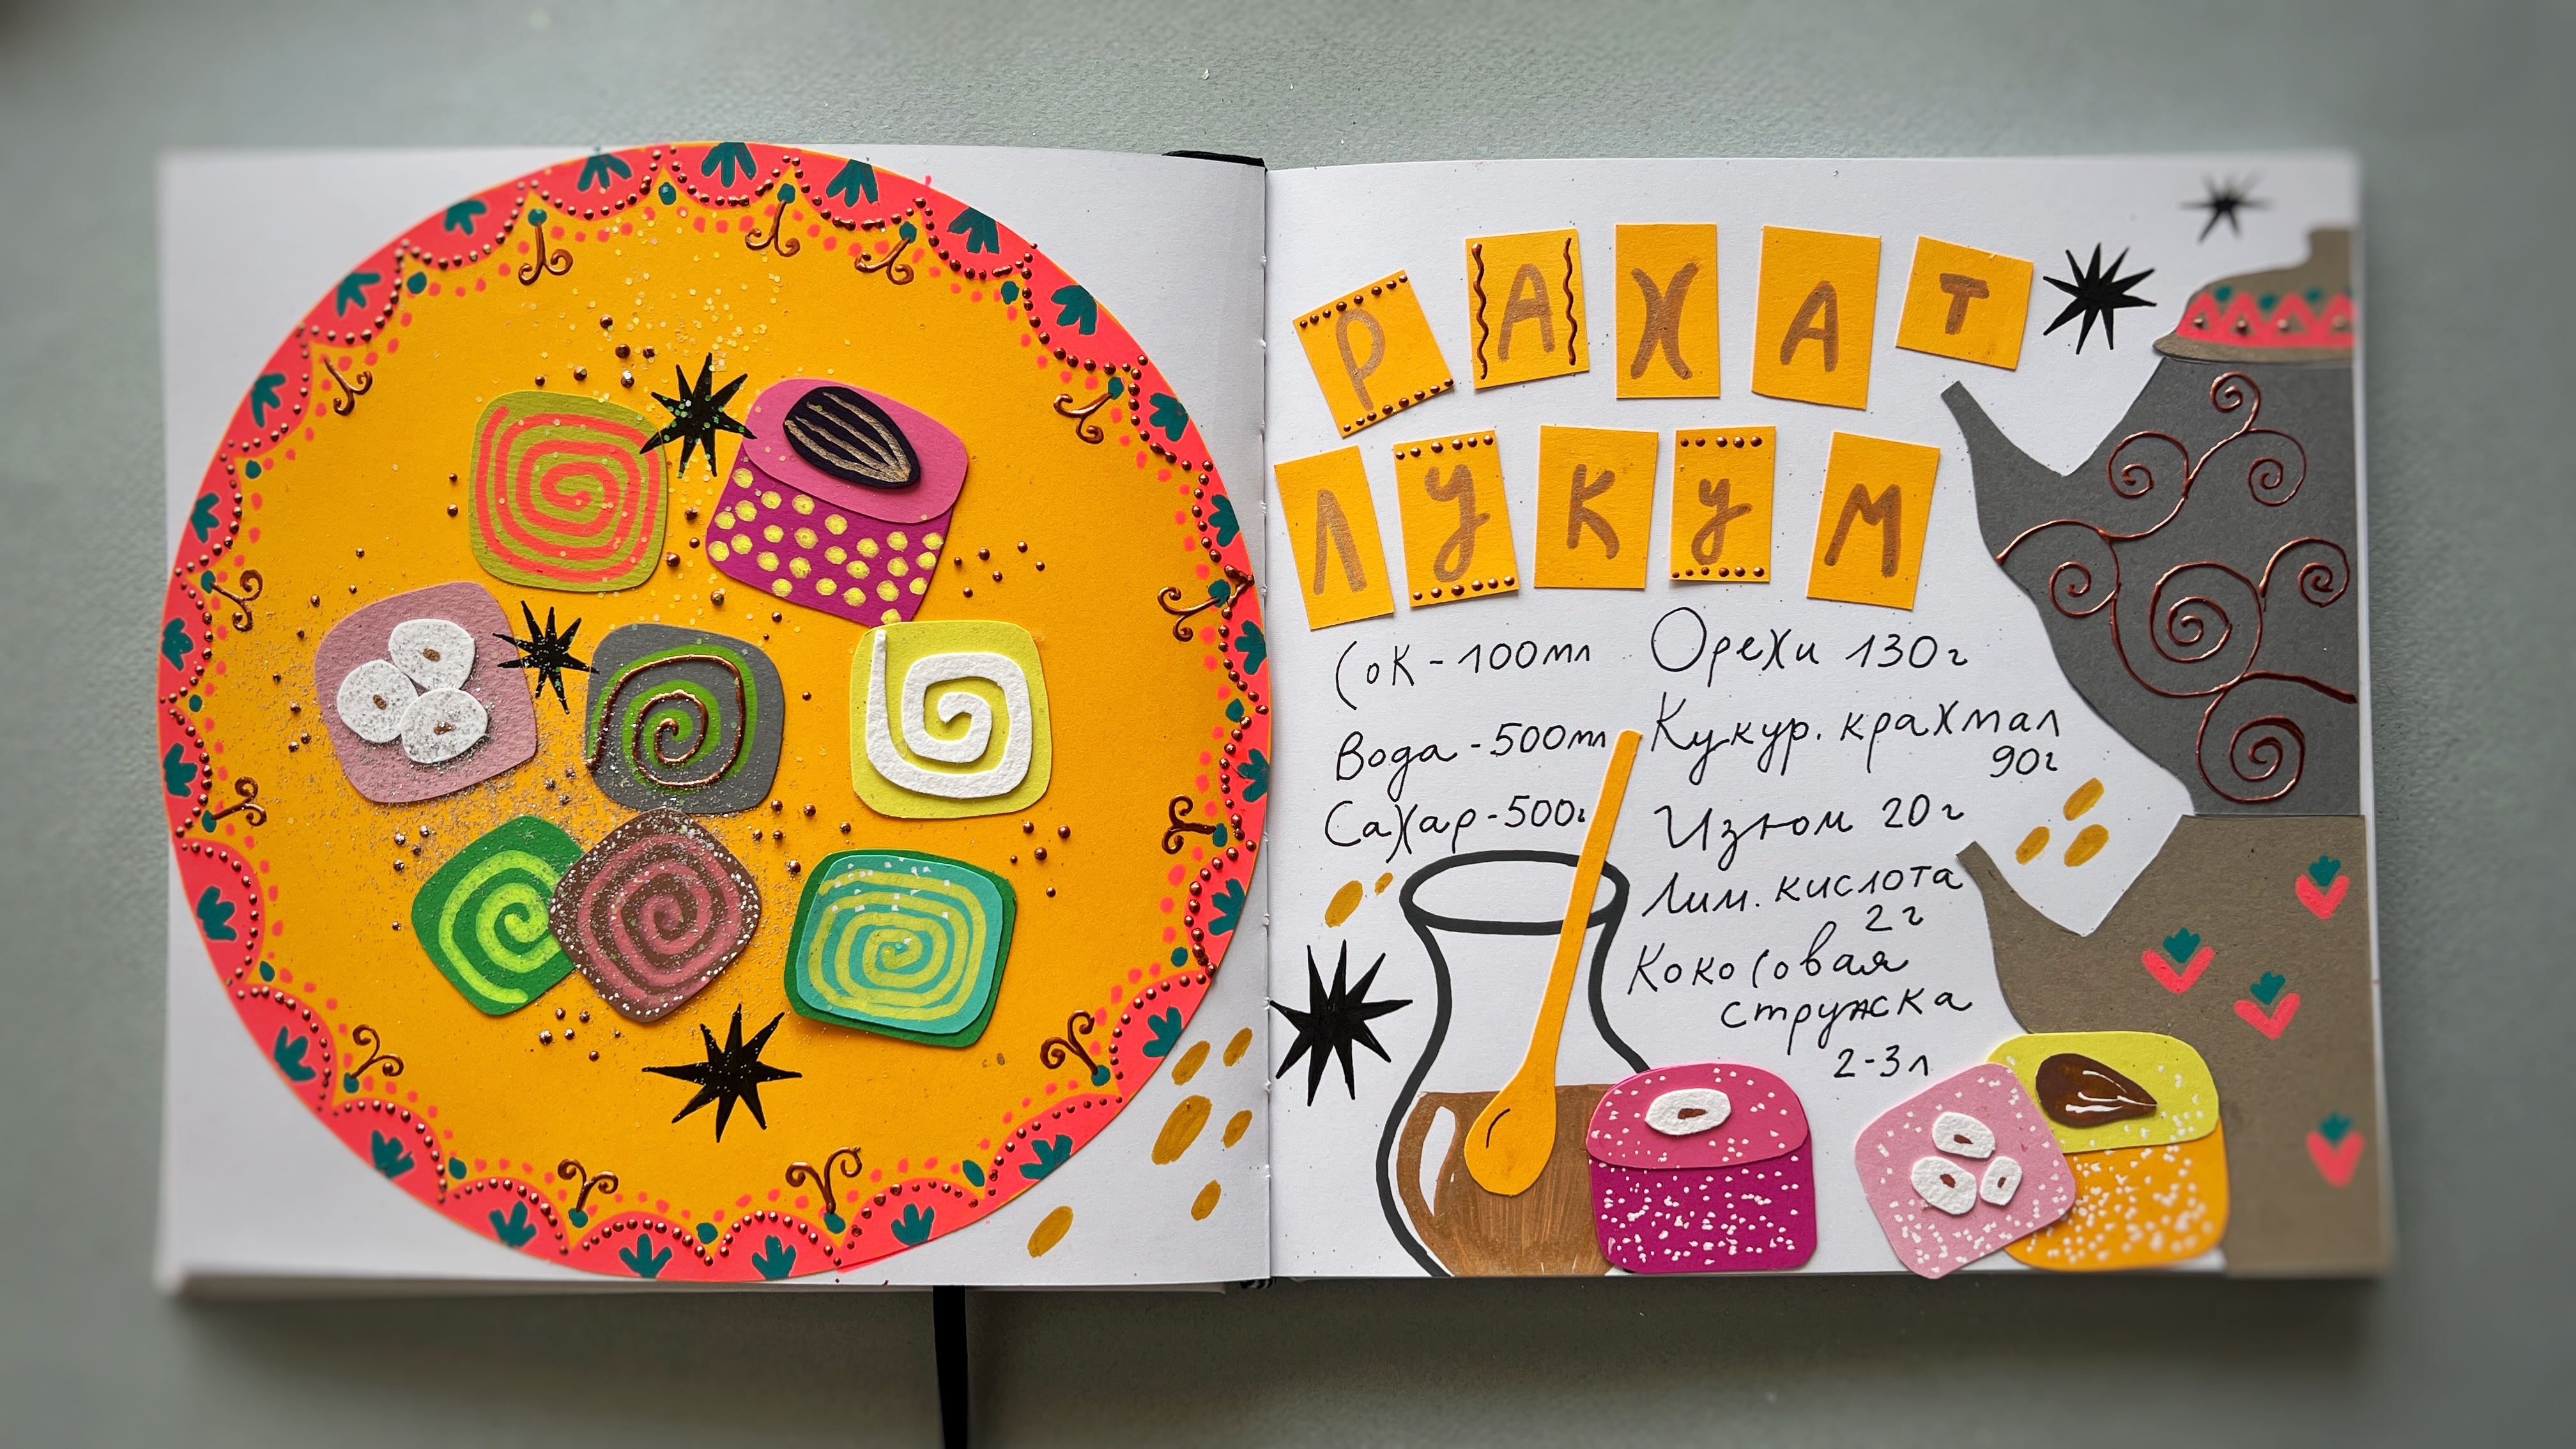 РАХАТ
ЛУКУМ
Сок - 100мл
Вода - 500мл
Сахар - 500г
Орехи 130г
Кукур. крахмал
90г
Изюм 20г
Лим. кислота
2г
Кокосовая
стружка
2-3л